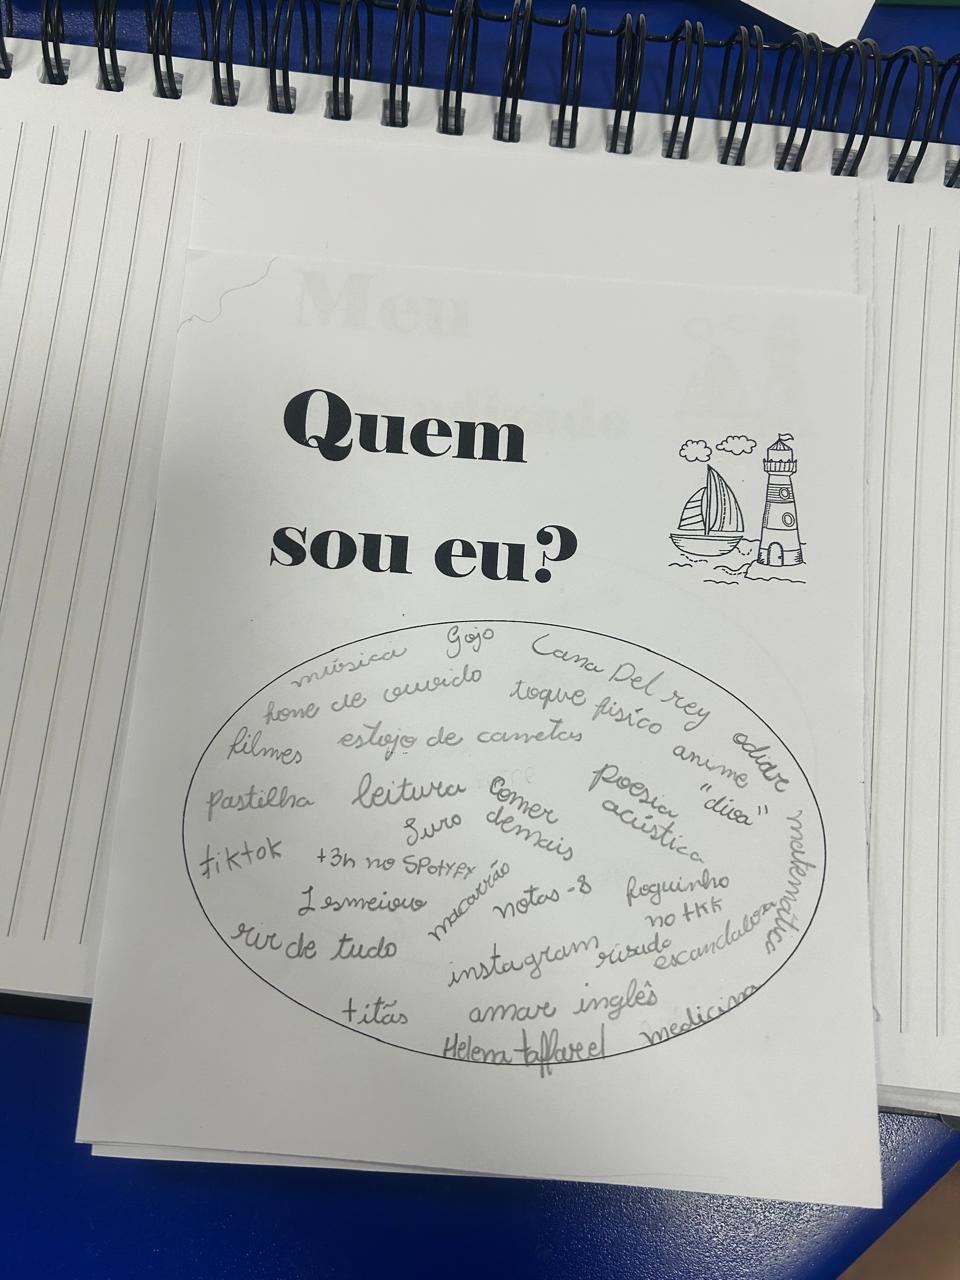 Quem
sou eu?
música
Gojo
Lana Del rey
fone de ouvido
toque físico
odiar
filmes
estojo de canetas
anime
"diva"
pastilha
leitura
Comer
demais
poesia
acústica
matemática
Juro
tiktok
+3h no SPotyfy
macarrão
notas -8
foguinho
no tkk
rir de tudo
instagram
risada
escandalosa
titãs
amar inglês
medicina
Helena taffarel